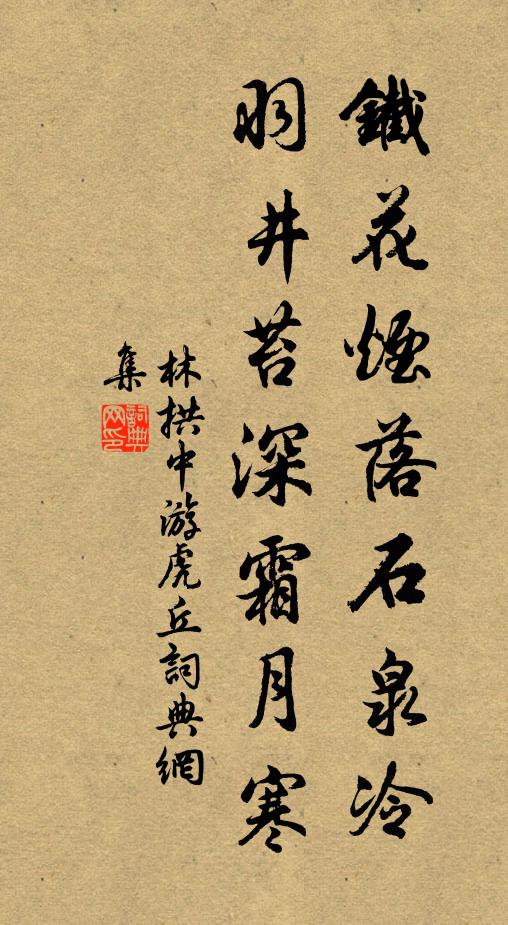 鐵花煙落石泉冷
羽井苔深霜月寒
林拱中游虎丘詞典網
集
詞典网印